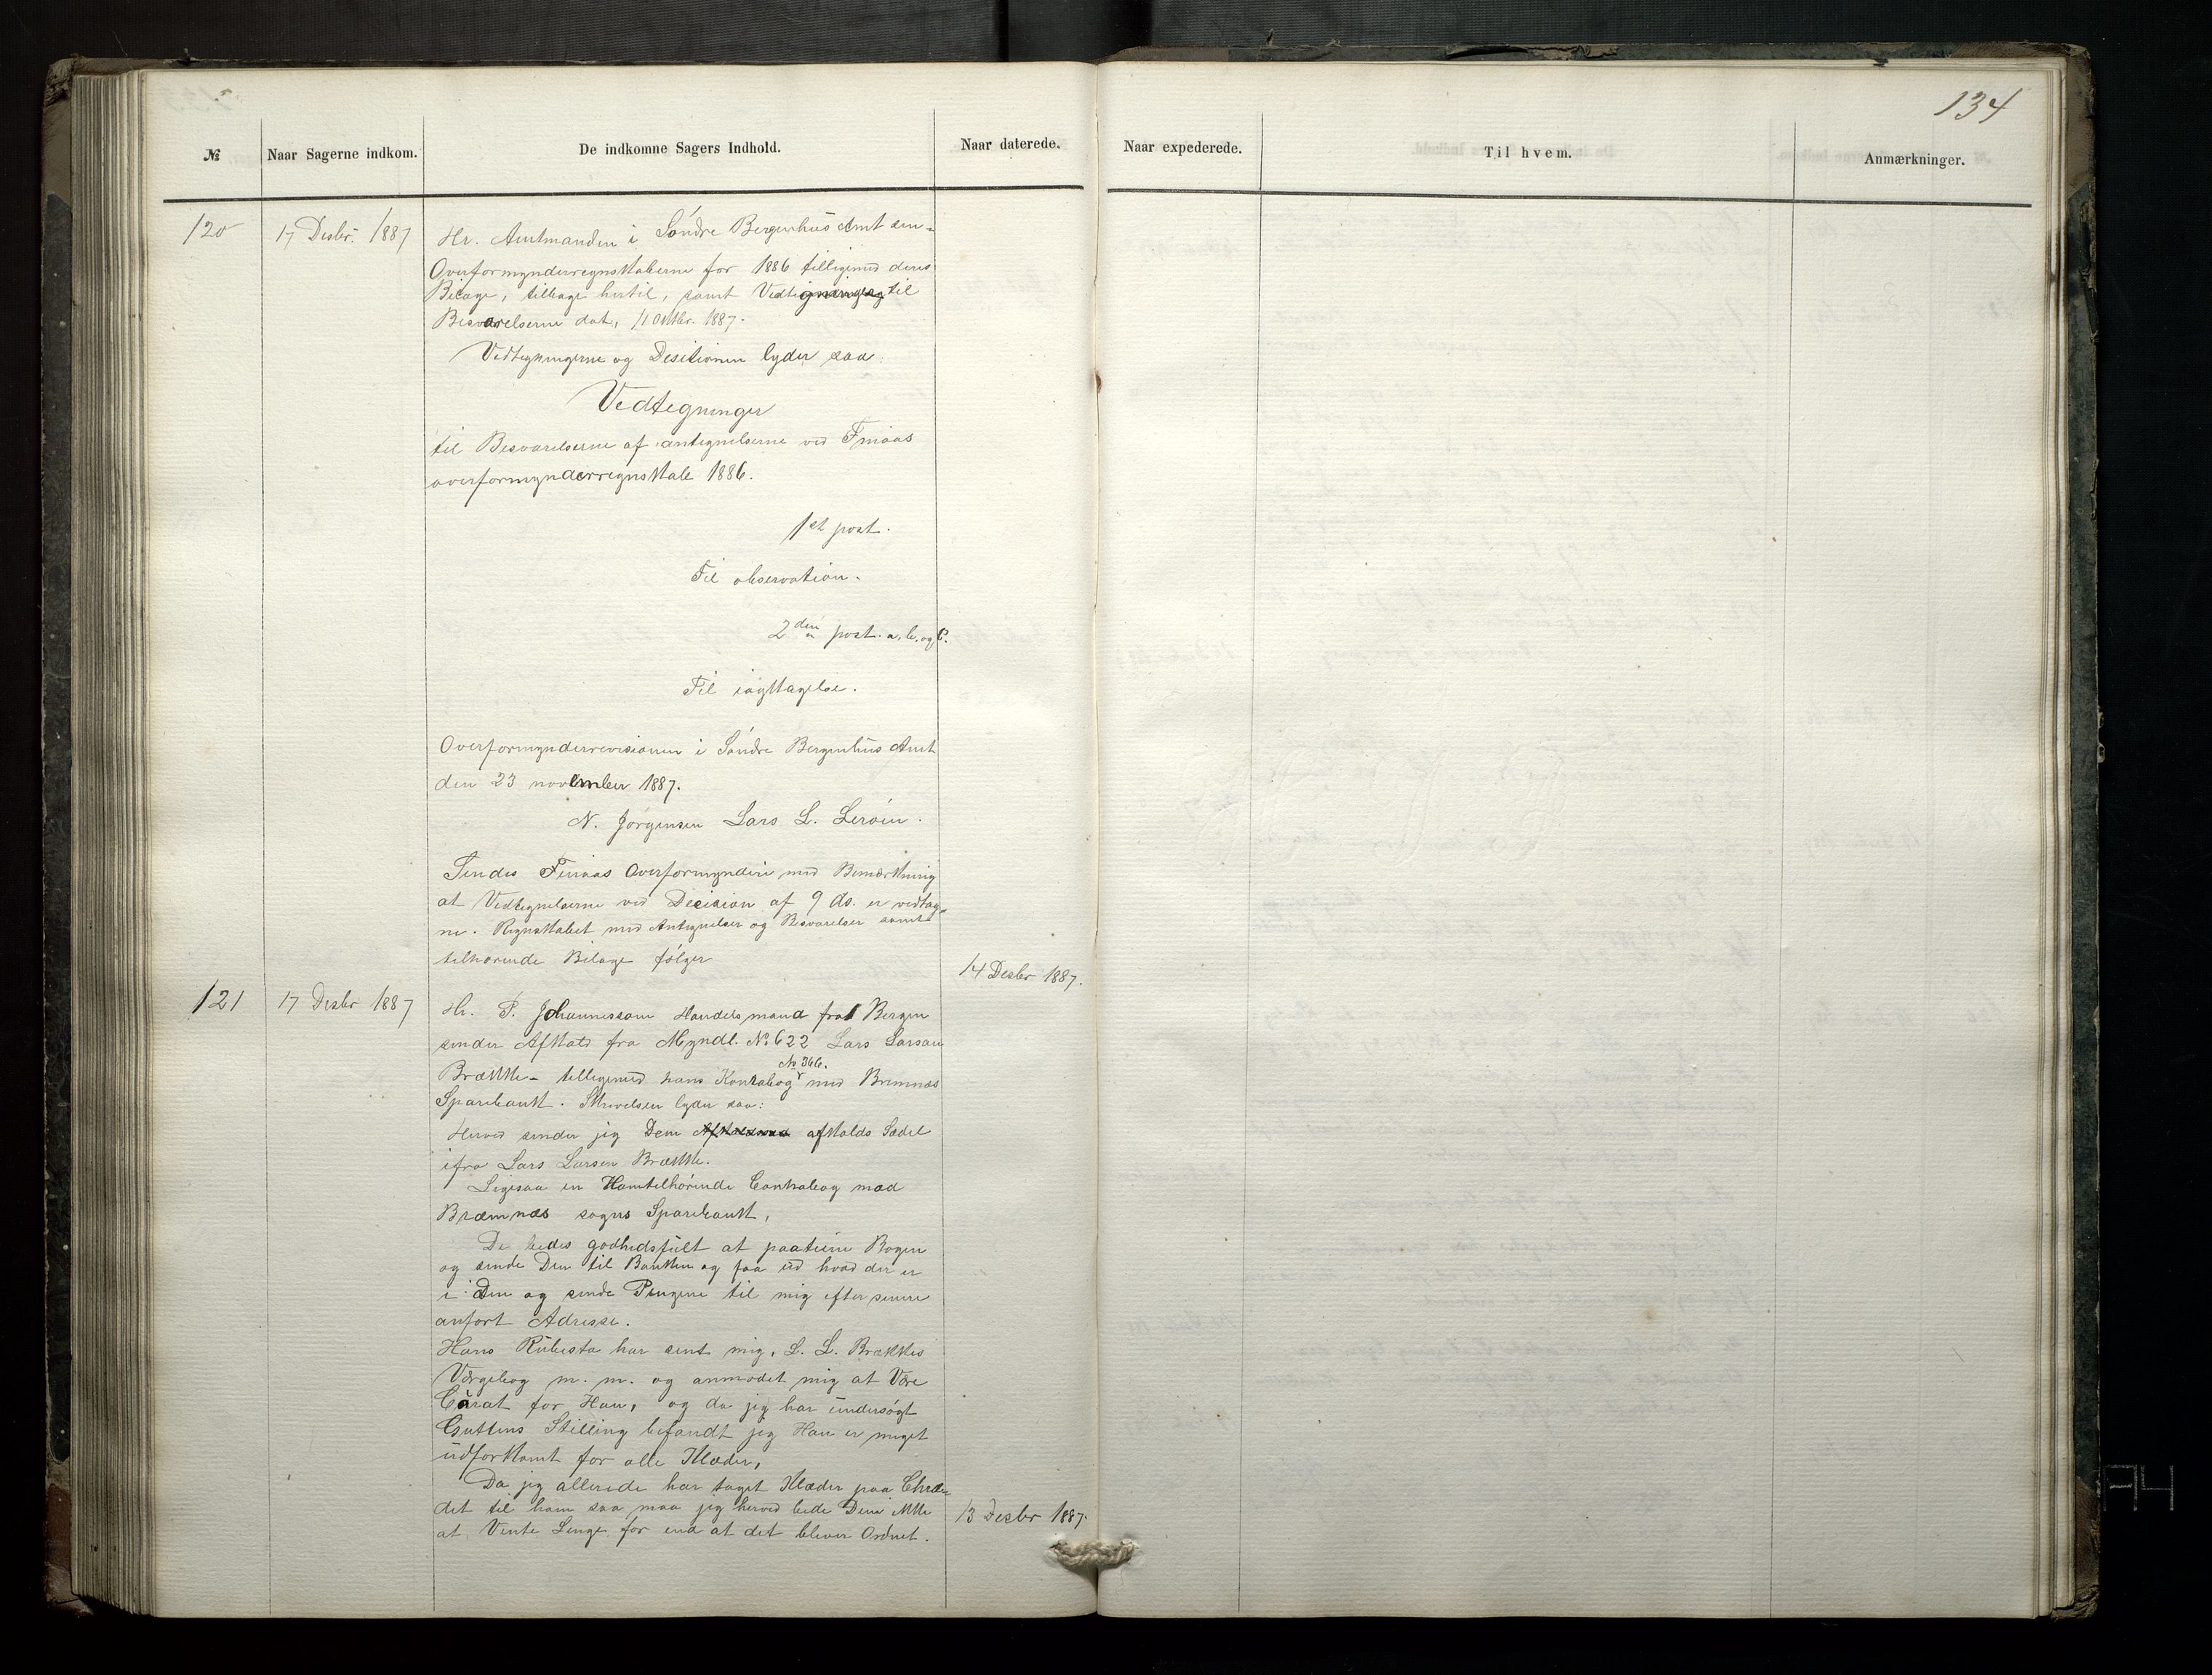 134
№ Naar Sagerne indkom. De indkomne Sagers Indhold. Naar daterede. Naar expederede. Til hvem. Anmærkninger.
120 17 Desbr. 1887 Hr. Amtmanden i Söndre Bergenhus Amt sen-
Overformynderregnskaberne for 1886 tilligemed deres
Bilage, tilbage hertil, samt Vedtegninger til
Besvarelserne dat, 11 Oktbr. 1887.
Vedtegningerne og Desitionen lyder saa:
Vedtegninger
til Besvarelserne af antegnelserne ved Finaas
overformynderregnskab 1886.
1st post.
Til observation.
2den post. a, b, og C.
Til iagttagelse.
Overformynderrevisionen i Söndre Bergenhus Amt
den 23 november 1887.
N. Jörgensen Lars L. Leröin.
Sendes Finaas Overformynderi med Bemærkning
at Vedtegnelserne ved Decision af 9 ds. er vedtag-
ne. Regnskabet med Antegnelser og Besvarelser samt
tilhorende Bilage fölger
14 Desbr 1887.
121 17 Desbr 1887 Hr. P. Johannessom Handelsmand fra Bergen
sender Afkald fra Myndl. No 622 Lars Larsen
No 366.
Brække - tilligemed hans Kontrabog med Bremnes
Sparebank. Skrivelsen lyder saa:
Herved sender jig Dem afkalds Sædel
ifra Lars Larsen Brække.
Ligesaa en Hamtelhörende Contrabog mæd
Bræmnæs sogns Sparebank,
De bedes godhedsfült at paateine Bogen
og sende Den til Banken og faa üd hvad der er
i Den og sende Pengene til mig efter senere
anfort Adresse.
Hans Rübesta har sent mig, L. L. Brækkes
Værgebog m. m. og anmodet mig at Være
Cürat for Ham, og da jeg har ündersögt
Guttens Stilling befandt jeg Han er meget
üdforkomt for alle Klæder,
Da jeg allerede har taget Klæder paa Chræ-
det til ham saa maa jeg herved bede Dem ikke
at Vente Lenge for end at det bliver Ordnet. 13 Desbr 1887.